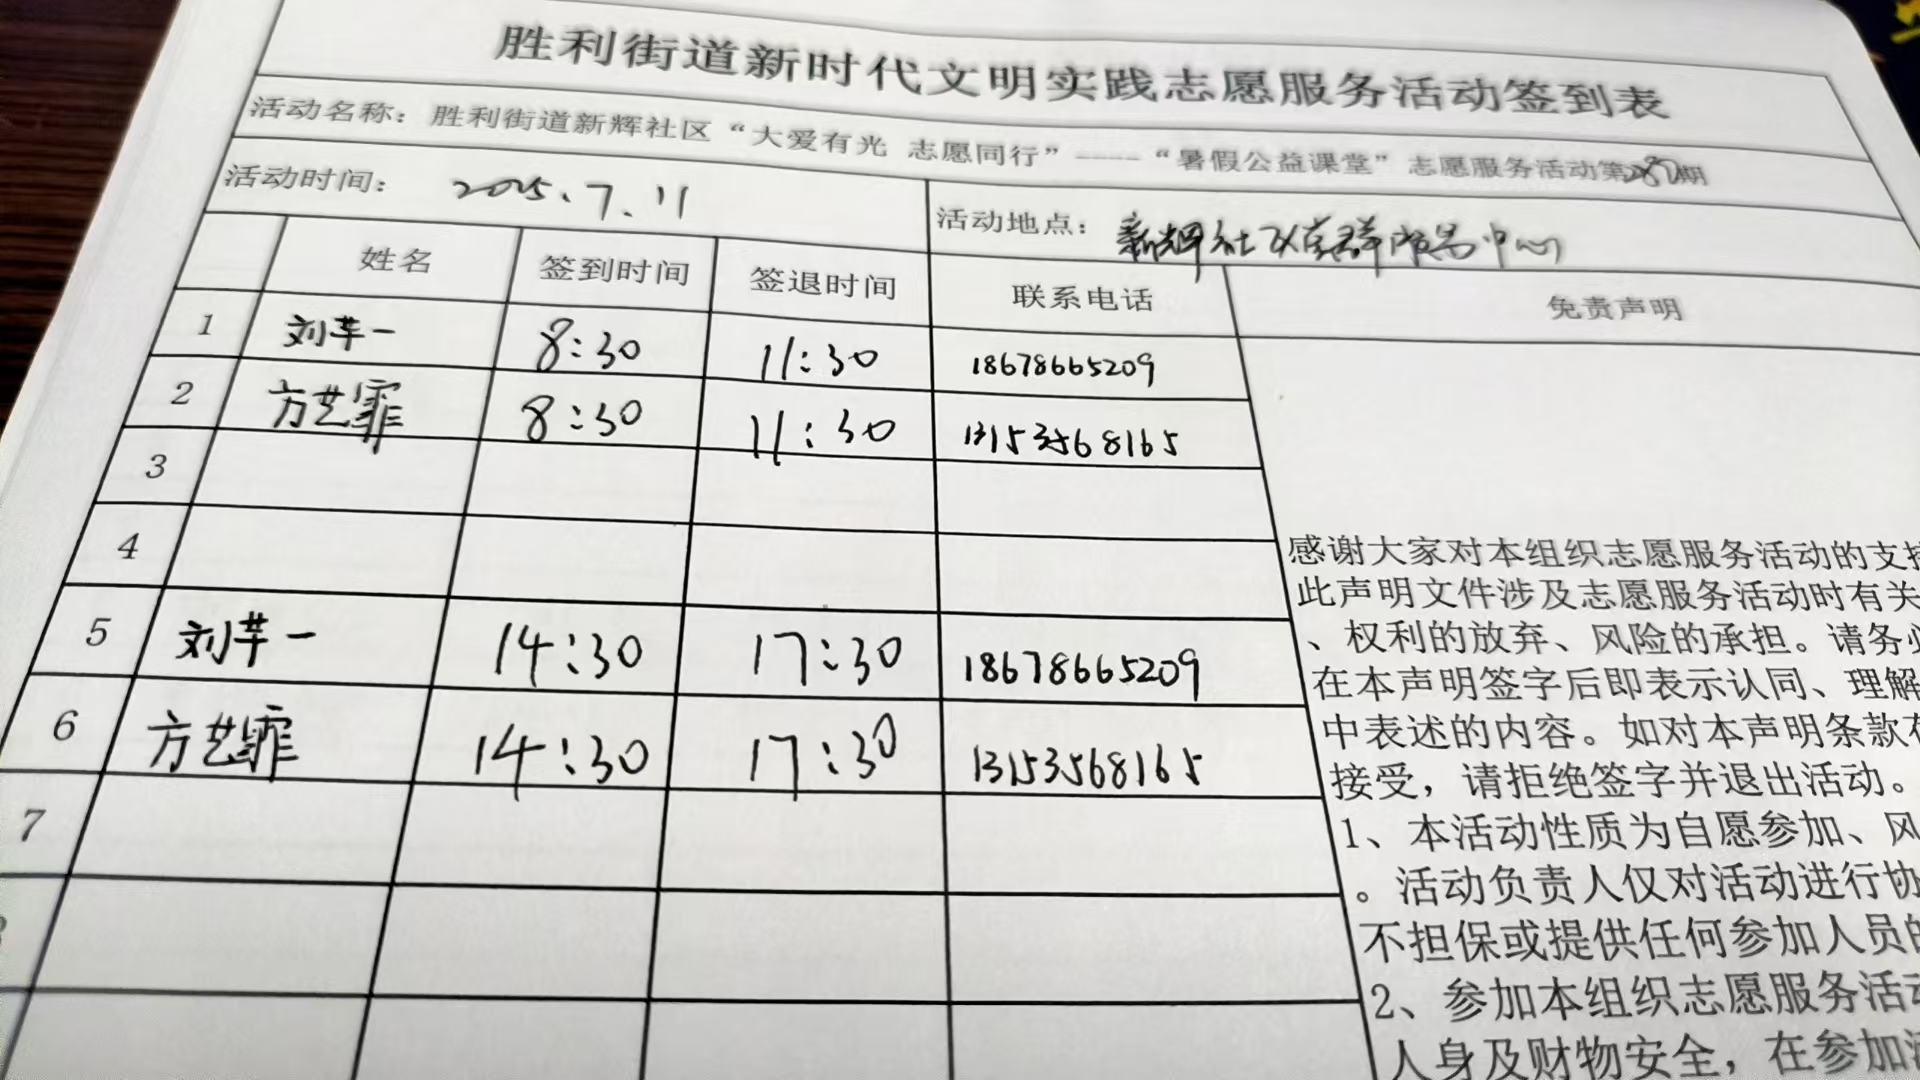 胜利街道新时代文明实践志愿服务活动签到表
活动名称：胜利街道新辉社区“大爱有光 志愿同行”----“暑假公益课堂”志愿服务活动第期
活动时间： 2025.7.11 活动地点： 新辉社区党群服务中心
姓名 签到时间 签退时间 联系电话 免责声明
1 刘芊一 8:30 11:30 18678665209
2 方艺霏 8:30 11:30 13153568165
3
4
5 刘芊一 14:30 17:30 18678665209
6 方艺霏 14:30 17:30 13153568165
7
感谢大家对本组织志愿服务活动的支持
此声明文件涉及志愿服务活动时有关
、权利的放弃、风险的承担。请务必
在本声明签字后即表示认同、理解
中表述的内容。如对本声明条款存
接受，请拒绝签字并退出活动。
1、本活动性质为自愿参加、风
。活动负责人仅对活动进行协
不担保或提供任何参加人员的
2、参加本组织志愿服务活动
人身及财物安全，在参加活